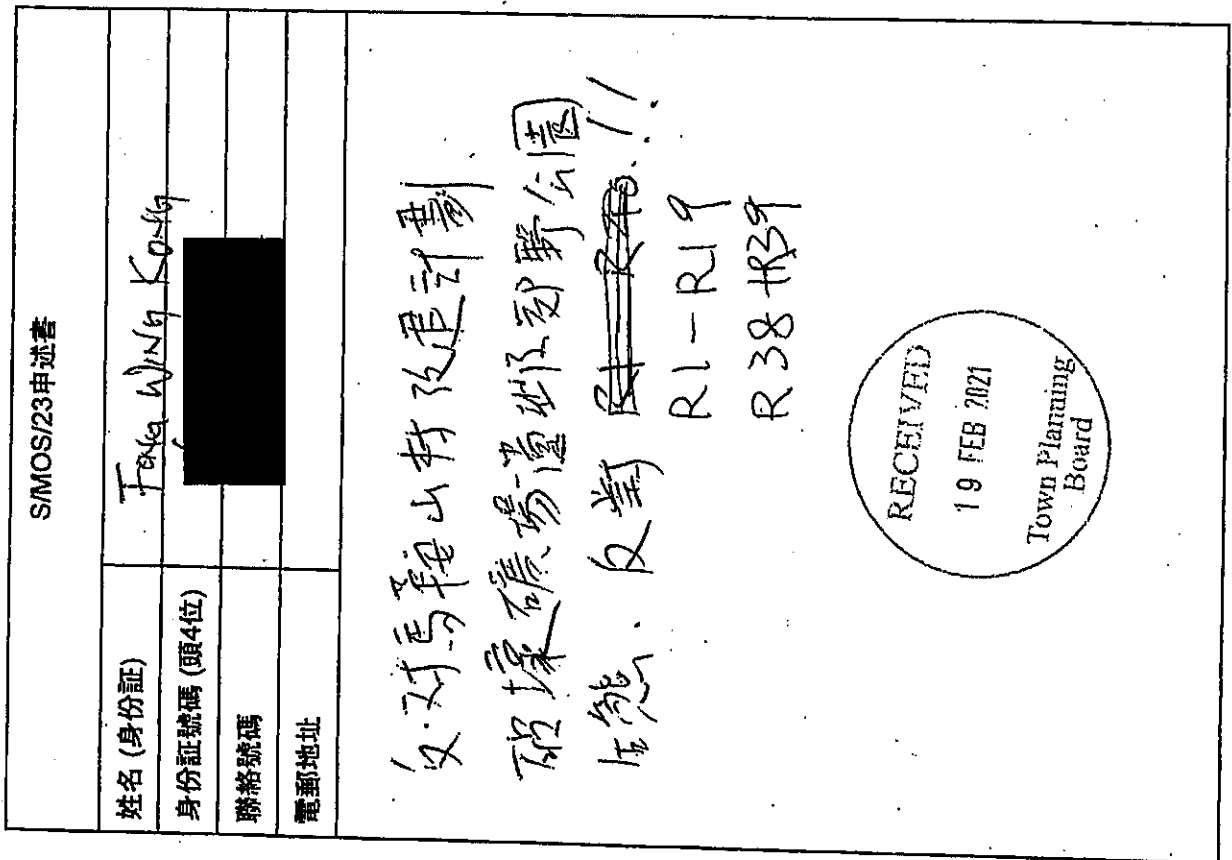 S/MOS/23申述書
姓名 (身份証)
Fong WING KONG
身份証號碼 (頭4位)
聯絡號碼
電郵地址
反对馬鞍山村改建計劃
破壞礦場遺址及郊野公園
生態. 反對 !!
R1-R19
R38+R39
RECEIVED
19 FEB 2021
Town Planning
Board